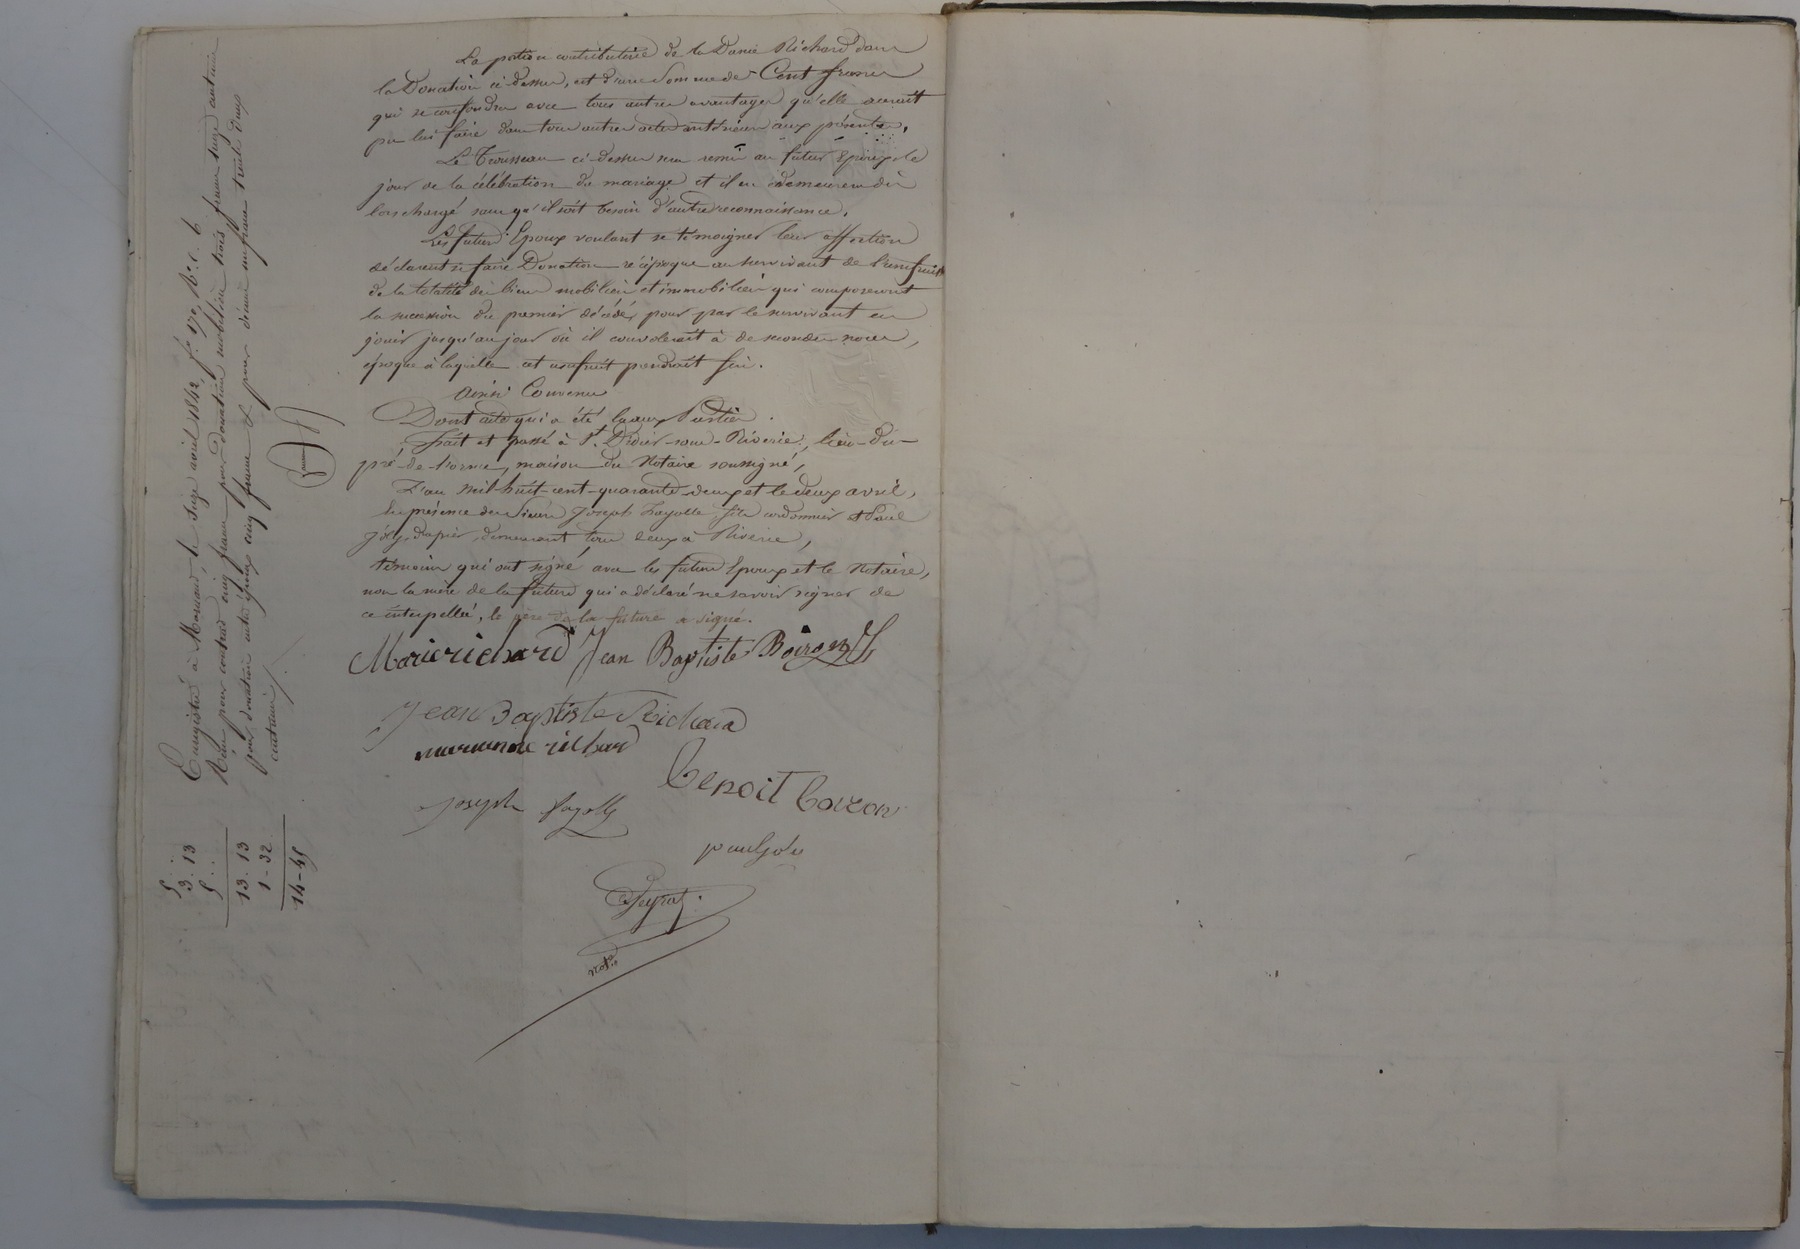 La portion contributive de la Dame Richard dans
la Donation ci-dessus, est d'une somme de Cent francs
qui se confondra avec tous autres avantages qu'elle aurait
pu lui faire dans tous autres actes antérieurs aux présentes.
Le Trousseau ci-dessus sera remis au futur Epoux le
jour de la célébration du mariage et il en demeurera dès
lors chargé sans qu'il soit besoin d'autre reconnaissance.
Les futurs Epoux voulant se témoigner leur affection
déclarent se faire Donation réciproque au survivant de l'usufruit
de la totalité des biens mobiliers et immobiliers qui composeront
la succession du premier décédé, pour par le survivant en
jouir jusqu'au jour où il convolerait à de secondes noces,
époque à laquelle cet usufruit prendrait fin.
Ainsi Convenu
Dont acte qui a été lu aux Parties.
Fait et passé à St. Didier-sous-Riverie, lieu-du-
pré-de-l'orme, maison du Notaire soussigné,
L'an mil-huit-cent-quarante-deux et le deux avril,
En présence des Sieurs Joseph Fayolle fils cordonnier & Paul
drapier, demeurant tous deux à Riverie,
témoins qui ont signé avec les futurs Epoux et le Notaire,
non la mère de la future qui a déclaré ne savoir signer de
ce interpellée, le père de la future a signé.
Marie richard Jean Baptiste Boiron
Jean Baptiste Richard
marianne richard
Benoit boiron
joseph fayolle
paul
Peyrat
note
Enregistré à Mornant, le Seize avril 1842, f.° 170, R.° c. 6
Reçu pour contrat cinq francs, pour donation mobilière trois francs treize centimes
pour donation entre époux cinq francs & pour décime un franc trente deux
centimes
5 . .
3. 13
5 . .
13. 13
1-32
14-45